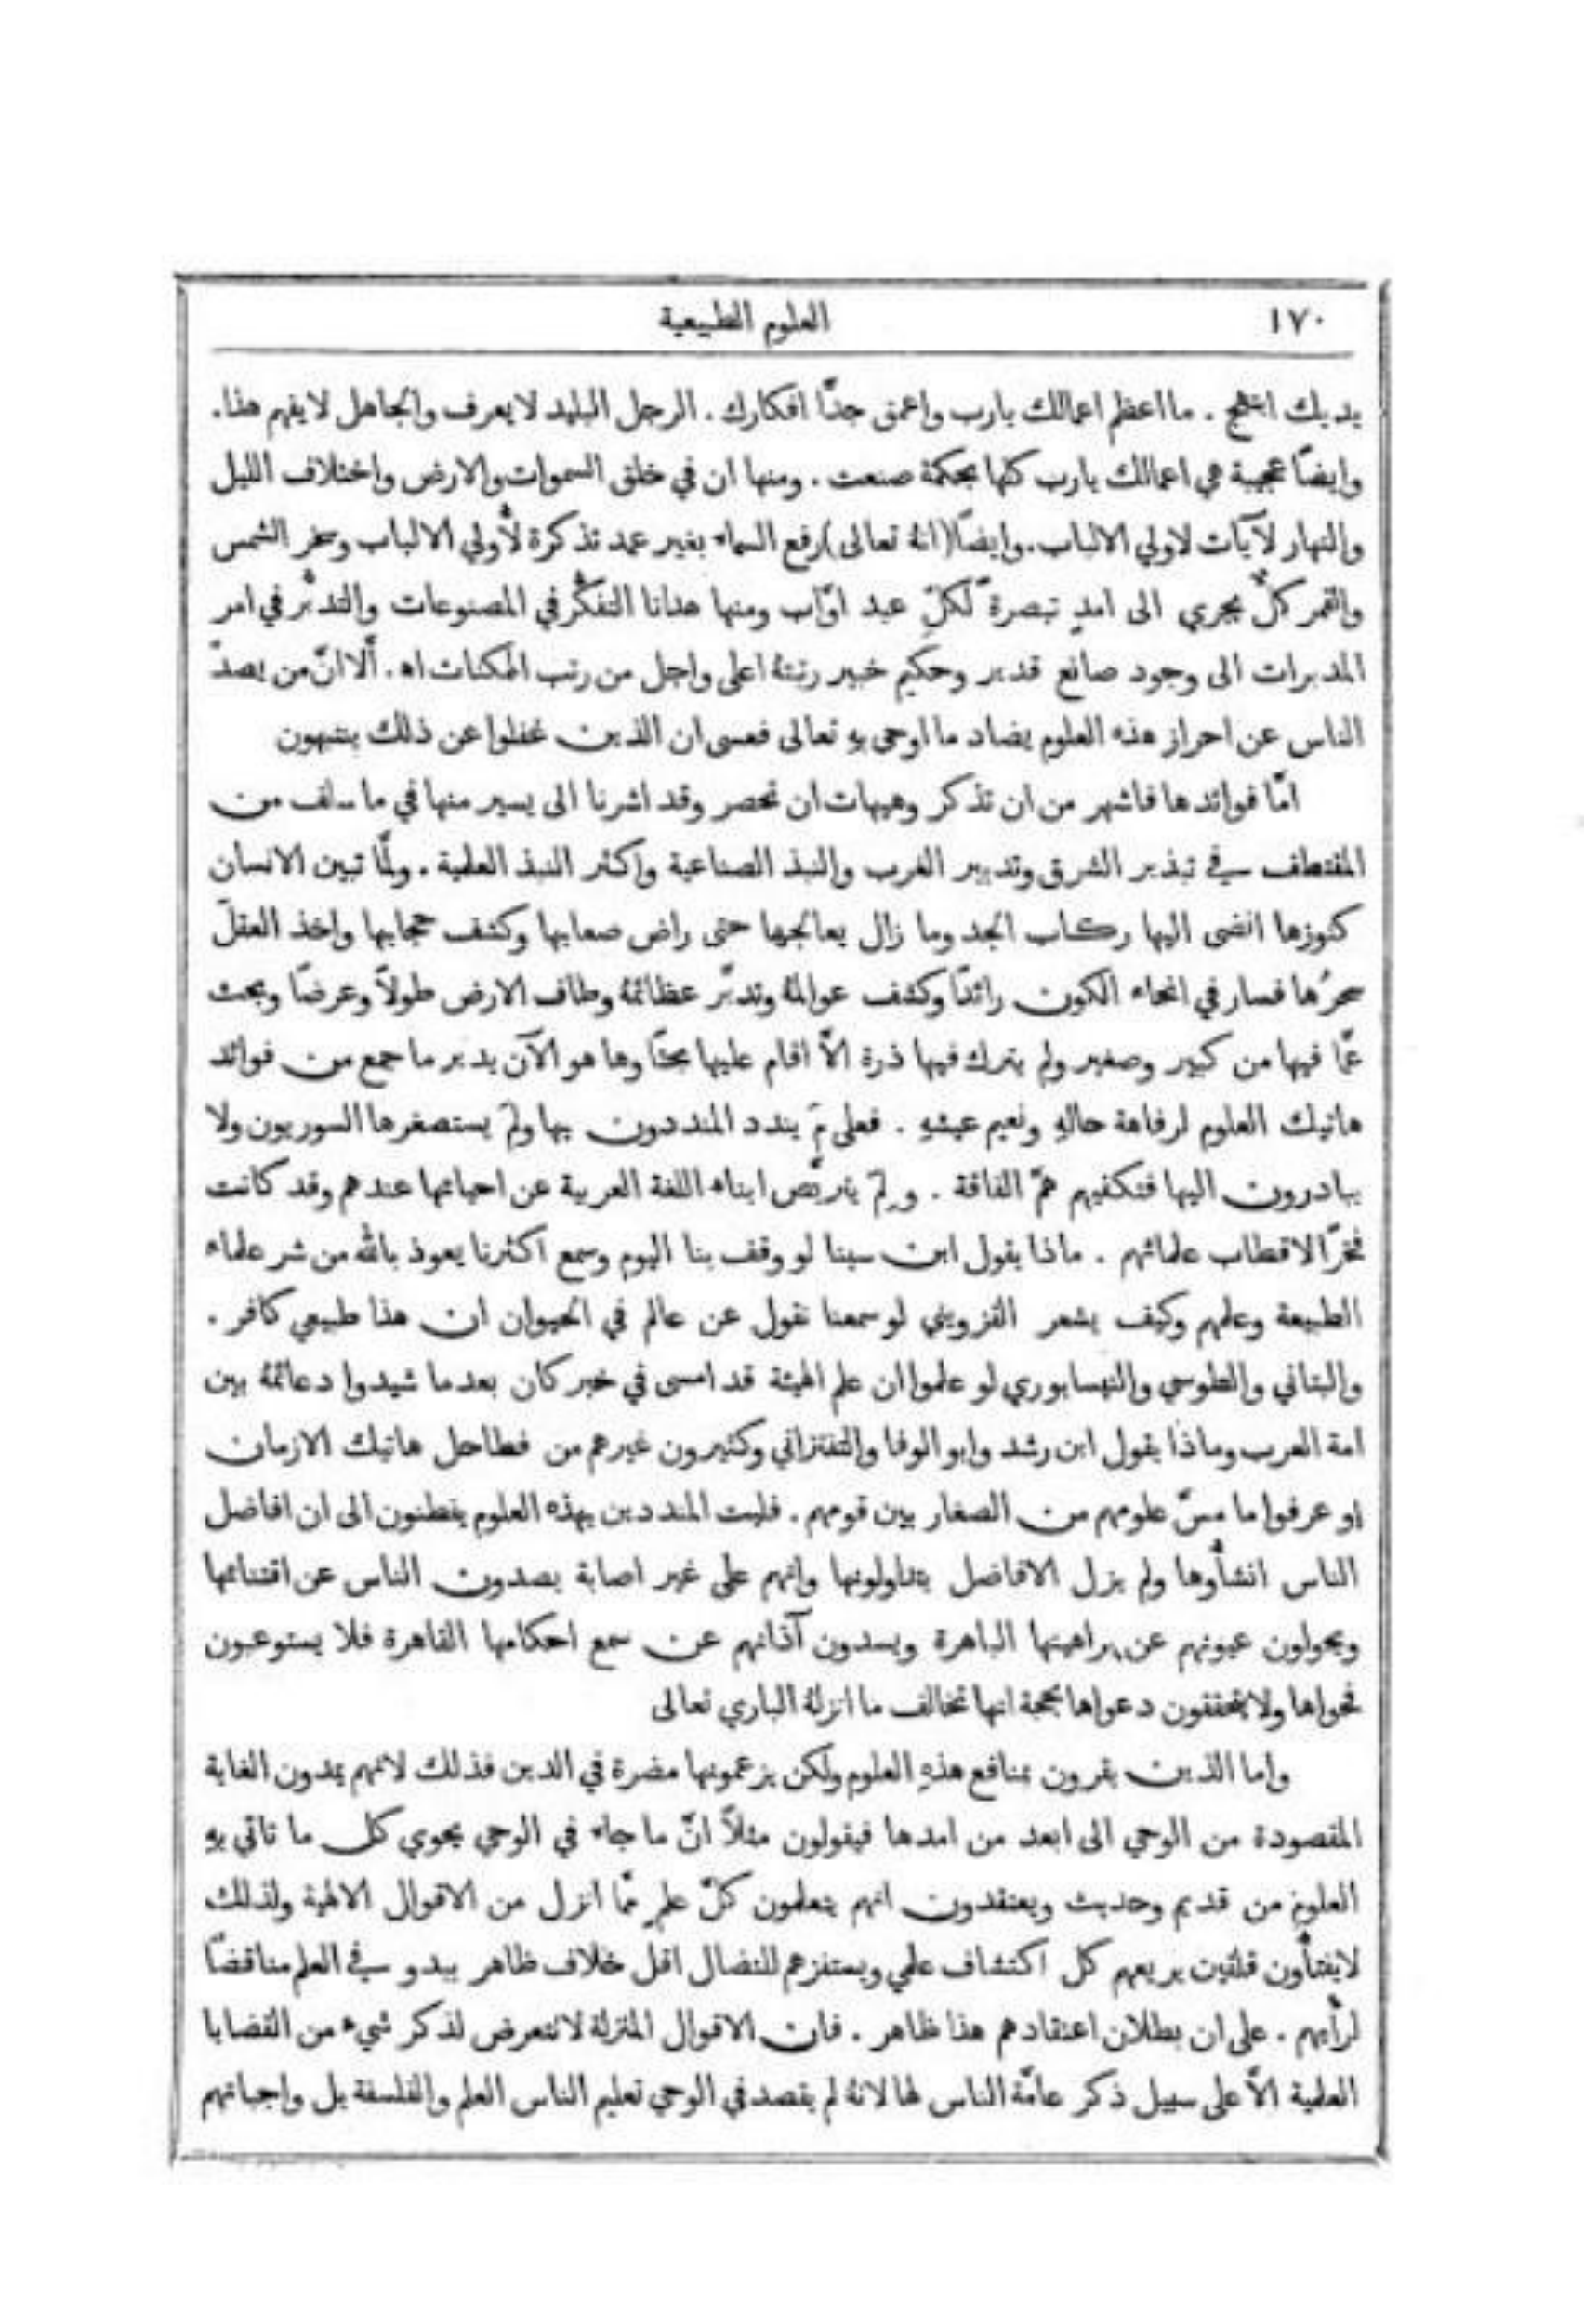 ١٧٠ العلوم الطبيعية
يديك ابتهج . ما اعظم اعمالك يا رب واعمق جدًّا افكارك . الرجل البليد لا يعرف والجاهل لا يفهم هذا .
وايضًا عجيبة هي اعمالك يا رب كلها بحكمة صنعت . ومنها ان في خلق السموات والارض واختلاف الليل
والنهار لآيات لاولي الالباب . وايضًا (انهُ تعالى) رفع السماء بغير عمد تذكرة لأولي الالباب وسخر الشمس
والقمر كلٌّ يجري الى امدٍ تبصرة لكلّ عبد اوّاب ومنها هدانا التفكُّر في المصنوعات والتدبُّر في امر
المدبرات الى وجود صانع قدير وحكيم خبير رتبتهُ اعلى واجل من رتب الممكنات اه . ألا انّ من يصدّ
الناس عن احراز هذه العلوم يضاد ما اوحى بهِ تعالى فعسى ان الذين غفلوا عن ذلك ينتبهون
امّا فوائدها فاشهر من ان تذكر وهيهات ان تحصر وقد اشرنا الى يسير منها في ما سلف من
المقتطف في تبذير الشرق وتدبير الغرب والنبذ الصناعية واكثر النبذ العلمية . ولمَّا تبين الانسان
كنوزها انضى اليها ركاب الجد وما زال يعالجها حتى راض صعابها وكشف حجابها واخذ العقلَ
سحرُها فسار في انحاء الكون رائدًا وكشف عوالمهُ وتدبَّر عظائمهُ وطاف الارض طولاً وعرضًا وبحث
عمَّا فيها من كبير وصغير ولم يترك فيها ذرة الاَّ اقام عليها بحثًا وها هو الآن يدبر ما جمع من فوائد
هاتيك العلوم لرفاهة حالهِ ونعيم عيشهِ . فعلى مَ يندد المنددون بها ولِمَ يستصغرها السوريون ولا
يبادرون اليها فتكفيهم همّ الفاقة . ولِمَ يتربَّص ابناء اللغة العربية عن احيائها عندهم وقد كانت
فخرًا لاقطاب علمائهم . ماذا يقول ابن سينا لو وقف بنا اليوم وسمع اكثرنا يعوذ بالله من شر علماء
الطبيعة وعلمهم وكيف يشعر القزويني لو سمعنا نقول عن عالم في الحيوان ان هذا طبيعي كافر .
والبتاني والطوسي والنيسابوري لو علموا ان علم الهيئة قد امسى في خبر كان بعدما شيدوا دعائمهُ بين
امة العرب وماذا يقول ابن رشد وابو الوفا والتفتزاني وكثيرون غيرهم من فطاحل هاتيك الازمان
لو عرفوا ما مسّ علومهم من الصغار بين قومهم . فليت المنددين بهذه العلوم يفطنون الى ان افاضل
الناس انشأوها ولم يزل الافاضل يتداولونها وانهم على غير اصابة يصدون الناس عن اقتنائها
ويحولون عيونهم عن براهينها الباهرة ويسدون آذانهم عن سمع احكامها القاهرة فلا يستوعبون
فحواها ولا يحققون دعواها بحجة انها تخالف ما انزلهُ الباري تعالى
واما الذين يقرون بمنافع هذهِ العلوم ولكن يزعمونها مضرة في الدين فذلك لانهم يمدون الغاية
المقصودة من الوحي الى ابعد من امدها فيقولون مثلاً انّ ما جاء في الوحي يحوي كل ما تاتي بهِ
العلوم من قديم وحديث ويعتقدون انهم يتعلمون كلّ علمٍ ممَّا انزل من الاقوال الالهية ولذلك
لا يفتأون قلقين يريعهم كل اكتشاف علمي ويستفزهم للنضال اقل خلاف ظاهر يبدو في العلم مناقضًا
لرأيهم . على ان بطلان اعتقادهم هذا ظاهر . فان الاقوال المنزلة لا تتعرض لذكر شيء من القضايا
العلمية الاَّ على سبيل ذكر عامّة الناس لها لانهُ لم يقصد في الوحي تعليم الناس العلم والفلسفة بل واجباتهم